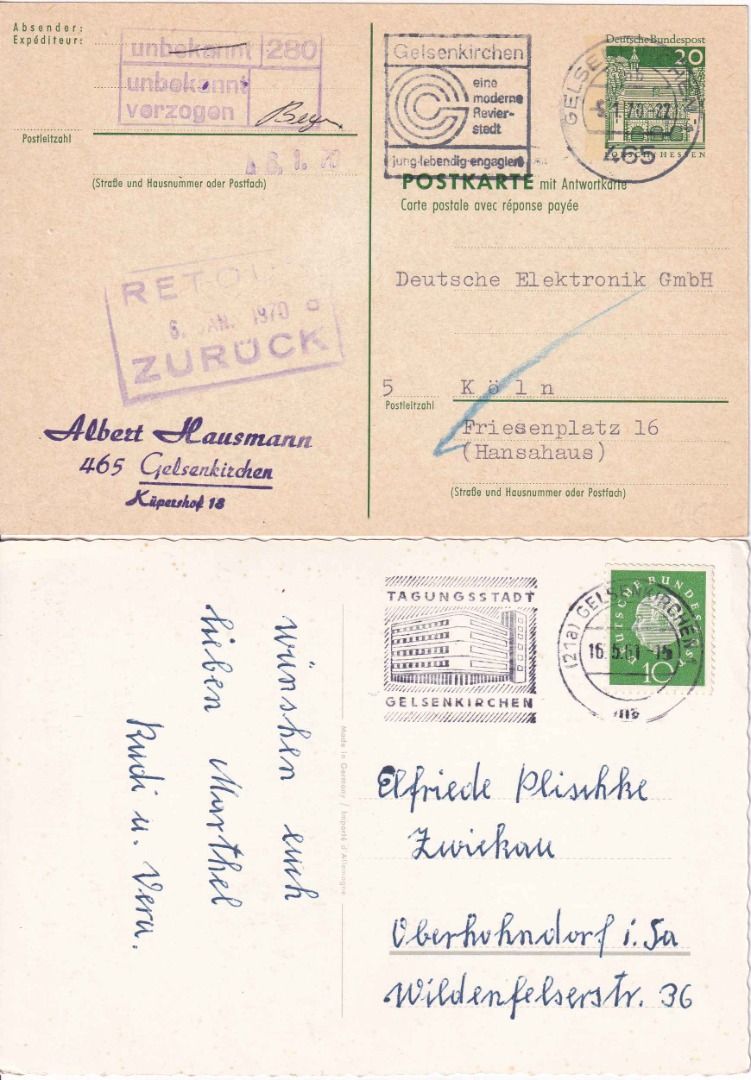 Absender:
Expéditeur:
unbekannt 280
unbekannt
verzogen
Postleitzahl
8. 1. 70
(Straße und Hausnummer oder Postfach)
Gelsenkirchen
eine
moderne
Revier-
stadt
jung·lebendig·engagiert
Deutsche Bundespost
20
465
POSTKARTE mit Antwortkarte
Carte postale avec réponse payée
Deutsche Elektronik GmbH
5 Köln
Postleitzahl
Friesenplatz 16
(Hansahaus)
(Straße und Hausnummer oder Postfach)
RETOUR
6. JAN. 1970
ZURÜCK
Albert Hausmann
465 Gelsenkirchen
Küpershof 18
TAGUNGSSTADT
GELSENKIRCHEN
(21a) GELSENKIRCHEN
16.5.61.-15
DEUTSCHE BUNDESPOST
10
wünschen euch
lieben Marthel
Rudi u. Vera.
Made in Germany / Importé d'Allemagne
Elfriede Plischke
Zwickau
Oberhohndorf i. Sa
Wildenfelserstr. 36